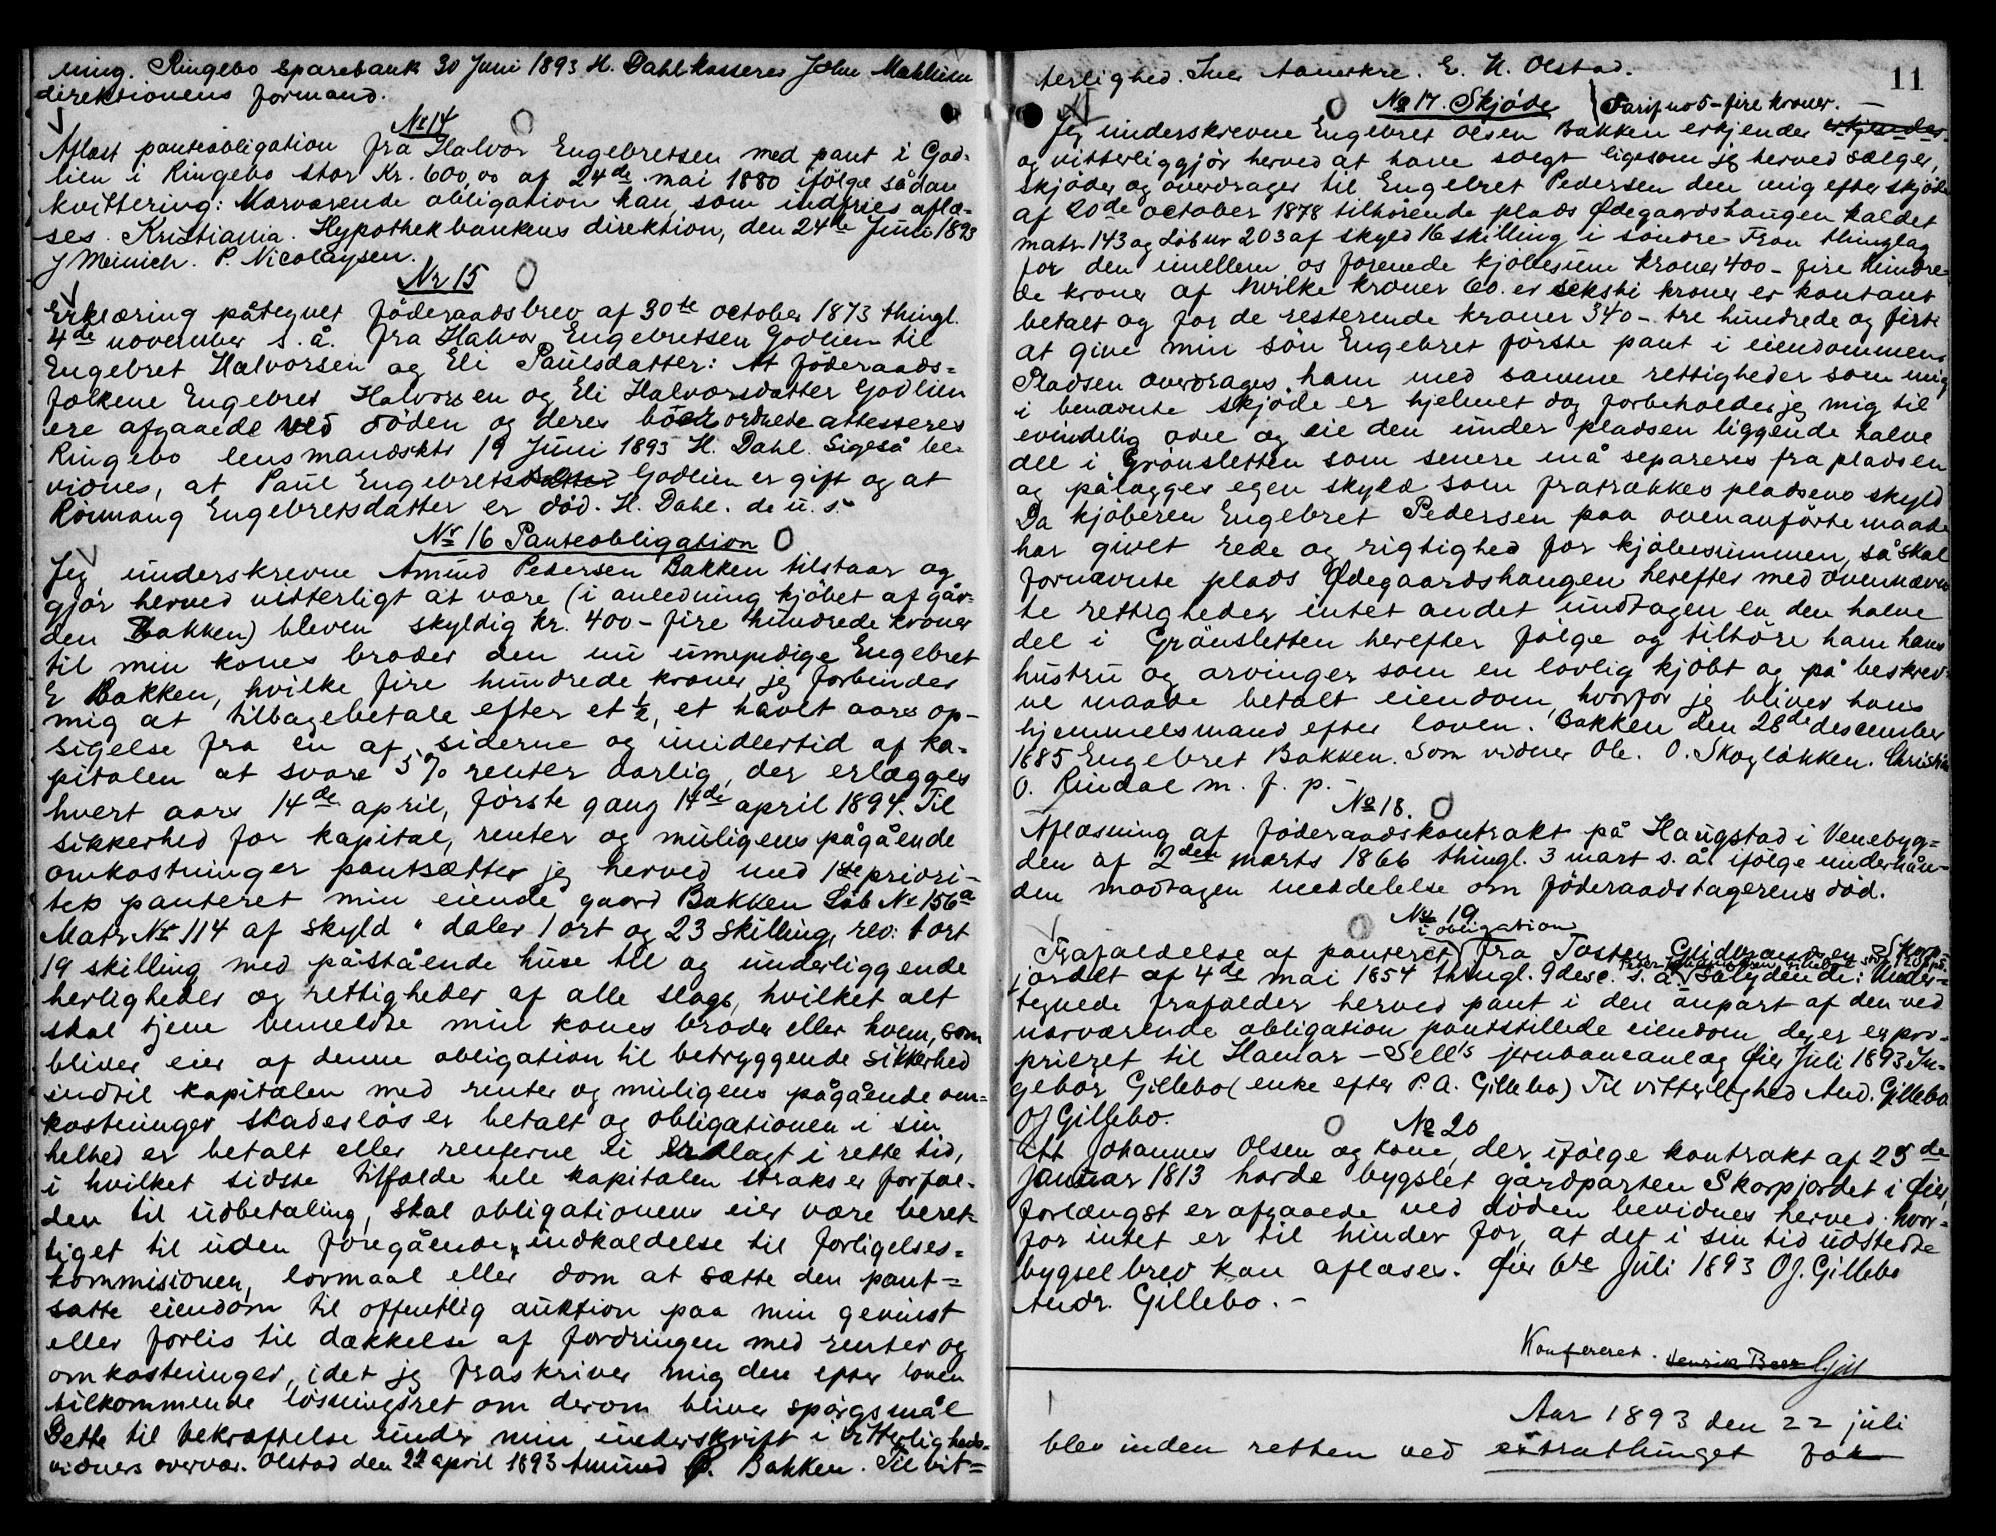 ning. Ringebo Sparebank 30 Juni 1893 H. Dahl kasserer John Mæhlum
direktionens formand.
Nr 14
Aflæst panteobligation fra Halvor Engebretsen med pant i God-
lien i Ringebo stor Kr. 600,00 af 24de mai 1880 ifölge sådan
kvittering: Nærværende obligation kan som indfries aflæ-
ses. Kristiania. Hypothekbankens direktion, den 24de Juni 1893
J Meinich. P. Nicolaysen.
Nr 15
Erklæring påtegnet föderaadsbrev af 30te october 1873 thingl.
4de november s. å. fra Halvor Engebretsen Godlien til
Engebret Halvorsen og Eli Paulsdatter: At föderaads-
folkene Engebret Halvorsen og Eli Halvorsdatter Godlien
ere afgaaede ved döden og deres boer ordnede attesteres
Ringebo lensmandskts 19 Juni 1893 H. Dahl. Ligeså be-
vidnes, at Paul Engebretsdatter Godlien er gift og at
Rönnaug Engebretsdatter er död. H. Dahl. d. u. s.
Nr 16 Panteobligation
Jeg underskrevne Amund Pedersen Bakken tilstaar og
gjör herved vitterligt at være (i anledning kjöbet af går-
den Bakken) bleven skyldig kr. 400 - fire hundrede kroner
til min kones broder den nu umyndige Engebret
E Bakken, hvilke fire hundrede kroner jeg forbinder
mig at tilbagebetale efter et ½, et havlt aars op-
sigelse fra en af siderne og imidlertid af ka-
pitalen at svare 5% renter aarlig, der erlægges
hvert aars 14de april, förste gang 14de april 1894. Til
sikkerhed for kapital, renter og muligens pågående
omkostninger pantsætter jeg herved med 1ste priori-
tets panteret min eiende gaard Bakken Löb No 156a
Matr No 114 af skyld " daler 1 ort og 23 skilling, rev: 1 ort
19 skilling med påstående huse til og underliggende
herligheder og rettigheder af alle slags, hvilket alt
skal tjene bemeldte min kones broder eller hvem, som
bliver eier af denne obligation til betryggende sikkerhed
indtil kapitalen med renter og muligens pågående om-
kostninger skadeslös er betalt og obligationen i sin
helhed er betalt eller renterne ei erlagt i rette tid,
i hvilket sidste tilfælde hele kapitalen straks er forfal-
den til udbetaling, skal obligationens eier være beret-
tiget til uden foregående indkaldelse til forligelses-
kommisionen, lovmaal eller dom at sætte den pant-
satte eiendom til offentlig auktion paa min gevinst
eller forlis til dækkelse af fordringen med renter og
omkostninger, idet jeg fraskriver mig den efter loven
tilkommende lösningsret om derom bliver spörgsmål
Dette til bekræftelse under min underskrift i vitterligheds-
vidners overvær. Olstad den 22 april 1893 Amund P. Bakken. Til vit-
terlighed. Iver Aaneskre. E. N. Olstad.
11
No 17. Skjöde Tarif no 5 - fire kroner. -
Jeg underskrevne Engebret Olsen Bakken erkjender erkjender
og vitterliggjör herved at have solgt ligesom jeg herved sælger,
skjöder og overdrager til Engebret Pedersen den mig efter skjöde
af 20de october 1878 tilhörende plads Ødegaardshaugen kaldet
matr 143 og Löbnr 203 af skyld 16 skilling i söndre Fron thinglag
for den imellem os forenede kjöbesum kroner 400 - fire hundre-
de kroner af hvilke kroner 60. er seksti kroner er kontant
betalt og for de resterende kroner 340 - tre hundrede og firti
at give min sön Engebret förste pant i eiendommen.
Pladsen overdrages ham med samme rettigheder som mig
i benævnte skjöde er hjelmet dog forbeholder jeg mig til
evindelig odel og eie den under pladsen liggende halve
del i Grönsletten som senere må separeres fra pladsen
og pålægges egen skyld som fratrækkes pladsens skyld
Da kjöberen Engebret Pedersen paa ovenanförte maade
har givet rede og rigtighed for kjöbesummen, så skal
fornævnte plads Ødegaardshaugen herefter med ovennævn-
te rettigheder intet andet undtagen en den halve
del i Grönsletten herefter fölge og tilhöre ham hans
hustru og arvinger som en lovlig kjöbt og på beskrev-
ne maade betalt eiendom, hvorfor jeg bliver hans
hjemmelsmand efter loven. Bakken den 28de descember
1885 Engebret Bakken. Som vidner Ole. O. Skoglökken. Christian
O. Rindal m. f. p.
No 18.
Aflæsning af föderaadskontrakt på Haugstad i Venebyg-
den af 2den marts 1866 thingl. 3 mart s. å. ifölge underhån-
den modtagen meddelelse om föderaadstagerens död.
No 19
i obligation
Frafaldelse af panteret fra Tosten Gudbrandsen Skorp-
jordet af 4de mai 1854 thingl. 9 desc. s. å. Salydende: Under-
tegnede frafalder herved pant i den anpart af den ved
nærværende obligation pantstillede eiendom der er expro-
prieret til Hamar - Sell's jernbaneanlæg Øier Juli 1893 In-
gebor Gillebo (enke efter P. A. Gillebo) Til vitterlighed And. Gillebo
O J Gillebo.
No 20
Att Johannes Olsen og kone, der ifölge kontrakt af 25de
Januar 1813 havde bygslet gårdparten Skorpjordet i Øier,
forlængst er afgaaede ved döden bevidnes herved. hvor-
for intet er til hinder for, at det i sin tid udstedte
bygselbrev kan aflæses. Øier 6te Juli 1893 O J. Gillebo
Andr. Gillebo. -
Konfereret.
Aar 1893 den 22 juli
blev inden retten ved extrathinget for